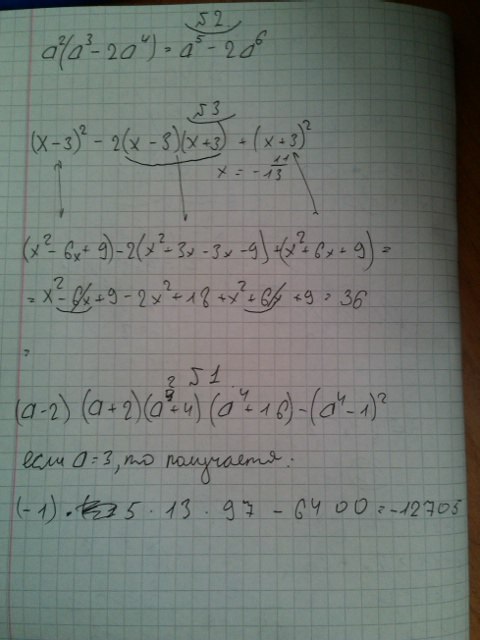 №2
a²(a³ - 2a⁴) = a⁵ - 2a⁶
№3
(x - 3)² - 2(x - 3)(x + 3) + (x + 3)²
x = -11/13
(x² - 6x + 9) - 2(x² + 3x - 3x - 9) + (x² + 6x + 9) =
= x² - 6x + 9 - 2x² + 18 + x² + 6x + 9 = 36
=
№1
(a - 2) (a + 2) (a² + 4) (a⁴ + 16) - (a⁴ - 1)²
если a = 3, то получается:
(-1) · 5 · 13 · 97 - 6400 = -12705